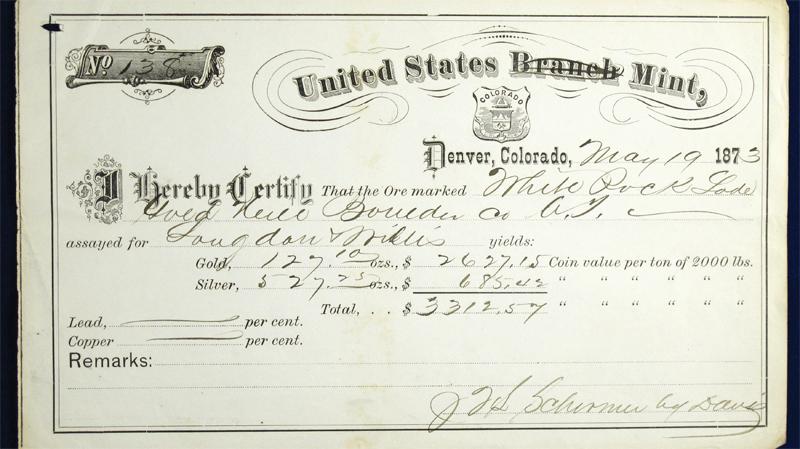 No 138
United States Branch Mint,
COLORADO
Denver, Colorado, May 19 1873
I Hereby Certify That the Ore marked White Rock Lode
Gold Hill Boulder Co C.T.
assayed for Langdon & Willis yields:
Gold, 127.10 ozs., $ 2627.15 Coin value per ton of 2000 lbs.
Silver, 527.25 ozs., $ 685.42 " " " " " "
Total, . . $ 3312.57 " " " " " "
Lead, per cent.
Copper per cent.
Remarks:
J F L Schirmer by Davis